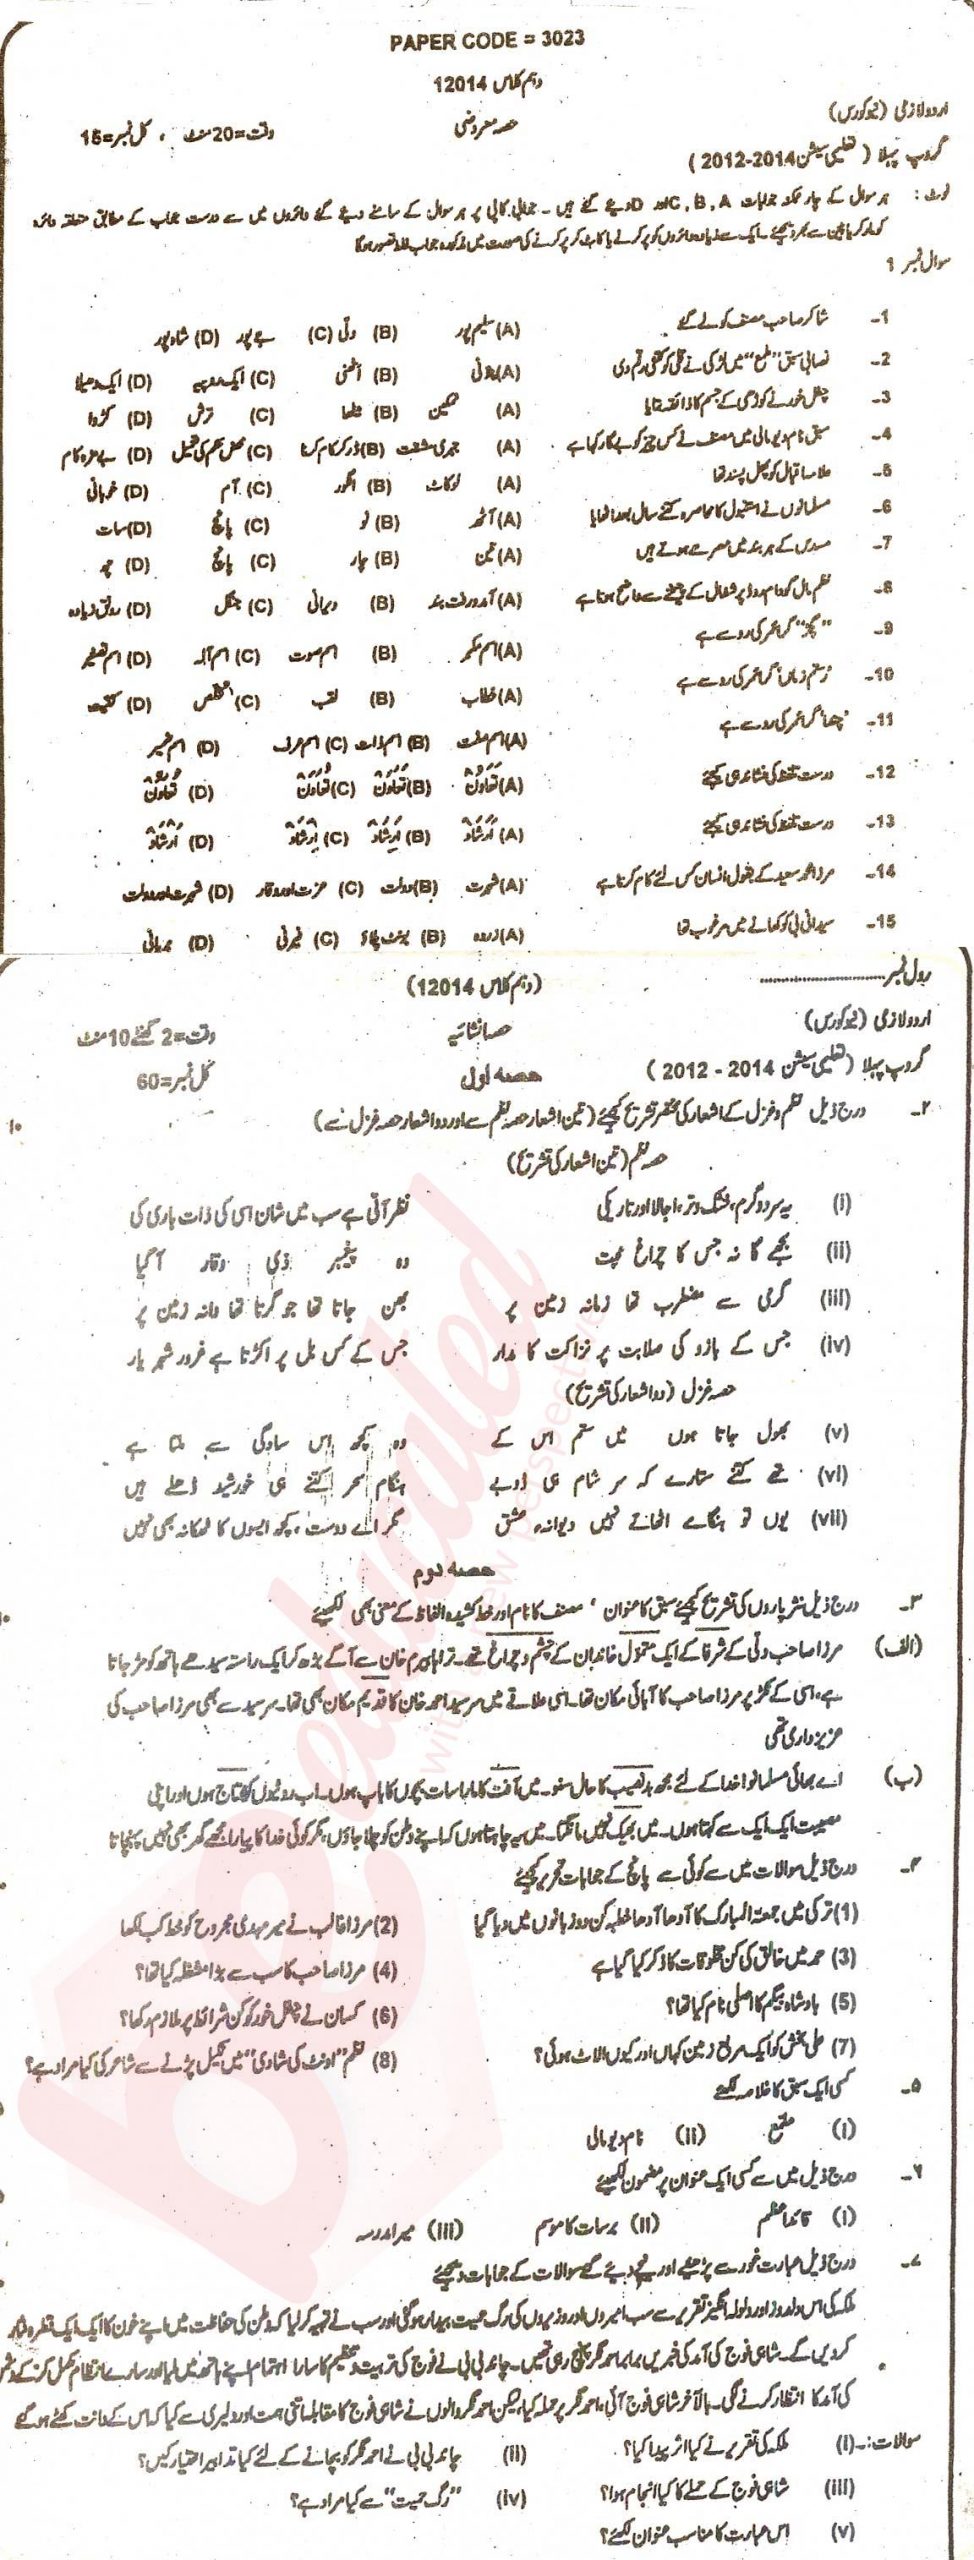 PAPER CODE = 3023
دہم کلاس 12014
اردو لازمی (نیو کورس)
حصہ معروضی
وقت=20 منٹ ، کل نمبر=15
گروپ پہلا (تعلیمی سیشن 2012-2014)
نوٹ: ہر سوال کے چار ممکنہ جوابات C, B, A اور D دیئے گئے ہیں۔ جوابی کاپی پر ہر سوال کے سامنے دیئے گئے دائروں میں سے درست جواب کے مطابق متعلقہ دائرہ
کو مارکر یا پین سے بھر دیجئے۔ ایک سے زیادہ دائروں کو پر کرنے یا کاٹ کر پر کرنے کی صورت میں مذکورہ جواب غلط تصور ہوگا
سوال نمبر 1
1- شاکر صاحب مصنف کو لے گئے (A) سلیم پور (B) دلی (C) جے پور (D) شاہ پور
2- نصابی سبق "ملمع" میں لڑکی نے قلی کو کتنی رقم دی (A) چونی (B) اٹھنی (C) ایک روپیہ (D) ایک دھیلا
3- چغل خور نے کوڑھی کے جسم کا ذائقہ بتایا (A) نمکین (B) میٹھا (C) ترش (D) کڑوا
4- سبق نام دیو مالی میں مصنف نے کس چیز کو بے کار کہا ہے (A) جبری مشقت (B) ڈر کر کام کرنا (C) محض حکم کی تعمیل (D) بے مزہ کام
5- علامہ اقبال کو پھل پسند تھا (A) لوکاٹ (B) انگور (C) آم (D) خوبانی
6- مسلمانوں نے استنبول کا محاصرہ کتنے سال بعد اٹھایا (A) آٹھ (B) نو (C) پانچ (D) سات
7- مسدس کے ہر بند میں مصرعے ہوتے ہیں (A) تین (B) چار (C) پانچ (D) چھ
8- نظم مال گودام روڈ پر شغال کے چیخنے سے واضح ہوتا ہے (A) آمدورفت بند (B) ویرانی (C) جنگل (D) رونق زیادہ
9- "پگڑ" گرامر کی رو سے ہے (A) اسم مکبر (B) اسم صوت (C) اسم آلہ (D) اسم تصغیر
10- رستم زماں گرامر کی رو سے ہے (A) خطاب (B) لقب (C) تخلص (D) کنیت
11- اچھا گرامر کی رو سے ہے (A) اسم صفت (B) اسم ذات (C) اسم ظرف (D) اسم ضمیر
12- درست تلفظ کی نشاندہی کیجئے (A) تَعَاوَنْ (B) تَعَاوَنَ (C) تُعَاوَنْ (D) تَعَاوُنْ
13- درست تلفظ کی نشاندہی کیجئے (A) اَرْشَادْ (B) اَرِشَادْ (C) اِرْشَادْ (D) اُرْشَادْ
14- مرزا محمد سعید کے بقول انسان کس لئے کام کرتا ہے (A) شہرت (B) دولت (C) عزت اور وقار (D) شہرت اور دولت
15- سیدانی بی کو کھانے میں مرغوب تھا (A) زردہ (B) یونٹ پلاؤ (C) فیرنی (D) بریانی
رول نمبر
(دہم کلاس 12014)
اردو لازمی (نیو کورس)
حصہ انشائیہ
وقت=2 گھنٹے 10 منٹ
گروپ پہلا (تعلیمی سیشن 2014 - 2012)
حصہ اول
کل نمبر=60
۲۔ درج ذیل نظم و غزل کے اشعار کی مختصر تشریح کیجئے (تین اشعار حصہ نظم سے اور دو اشعار حصہ غزل سے) ۱۰
حصہ نظم (تین اشعار کی تشریح)
(i) یہ سرد و گرم، خشک و تر، اجالا اور تاریکی نظر آتی ہے سب میں شان اسی کی ذات باری کی
(ii) بجھے گا نہ جس کا چراغ محبت وہ پیغمبر ذی وقار آ گیا
(iii) گرمی سے مضطرب تھا زمانہ زمین پر بھن جاتا تھا جو گرتا تھا دانہ زمین پر
(iv) جس کے بازو کی صلابت پر نزاکت کا مدار جس کے کس بل پر اکڑتا ہے غرور شہریار
حصہ غزل (دو اشعار کی تشریح)
(v) بھول جاتا ہوں میں ستم اس کے وہ کچھ اس سادگی سے ملتا ہے
(vi) تھے کتنے ستارے کہ سر شام ہی ڈوبے ہنگام سحر کتنے ہی خورشید ڈھلے ہیں
(vii) یوں تو ہنگامے اٹھاتے نہیں دیوانہ عشق مگر اے دوست، کچھ ایسوں کا ٹھکانہ بھی نہیں
حصہ دوم
۳۔ درج ذیل نثر پاروں کی تشریح کیجئے سبق کا عنوان ' مصنف کا نام اور خط کشیدہ الفاظ کے معنی بھی لکھیے ۱۰
(الف) مرزا صاحب دلی کے شرفا کے ایک متمول خاندان کے چشم و چراغ تھے۔ تراہا بیرم خان سے آگے بڑھ کر ایک راستہ سیدھے ہاتھ کو مڑ جاتا
ہے، اسی کے نکڑ پر مرزا صاحب کا آبائی مکان تھا۔ اسی علاقے میں سرسید احمد خان کا قدیم مکان بھی تھا۔ سرسید سے بھی مرزا صاحب کی
عزیز داری تھی
(ب) اے بھائی مسلمانو! خدا کے لئے مجھ بدنصیب کا حال سنو۔ میں آفت کا مارا سات بچوں کا باپ ہوں۔ اب روٹیوں کو محتاج ہوں اور اپنی
مصیبت ایک ایک سے کہتا ہوں۔ میں بھیک نہیں مانگتا۔ میں یہ چاہتا ہوں کہ اپنے وطن کو چلا جاؤں، مگر کوئی خدا کا پیارا مجھے گھر بھی نہیں پہنچاتا
۴۔ درج ذیل سوالات میں سے کوئی سے پانچ کے جوابات تحریر کیجئے
(1) ترکی میں جمعۃ المبارک کا آدھا آدھا خطبہ کن دو زبانوں میں دیا گیا (2) مرزا غالب نے میر مہدی مجروح کو خط کب لکھا
(3) حمد میں خالق کی کن مخلوقات کا ذکر کیا گیا ہے (4) مرزا صاحب کا سب سے بڑا مشغلہ کیا تھا؟
(5) بادشاہ بیگم کا اصلی نام کیا تھا؟ (6) کسان نے چغل خور کو کن شرائط پر ملازم رکھا؟
(7) علی بخش کو ایک مربع زمین کہاں اور کیوں الاٹ ہوئی؟ (8) نظم "اونٹ کی شادی" میں نکیل پڑنے سے شاعر کی کیا مراد ہے؟
۵۔ کسی ایک سبق کا خلاصہ لکھئے
(i) ملمع (ii) نام دیو مالی
۶۔ درج ذیل میں سے کسی ایک عنوان پر مضمون لکھیئے
(i) قائد اعظم (ii) برسات کا موسم (iii) میرا مدرسہ
۷۔ درج ذیل عبارت غور سے پڑھیے اور نیچے دیئے گئے سوالات کے جوابات دیجئے
ملکہ کی اس ولدوز اور ولولہ انگیز تقریر سے سب امیروں اور وزیروں کی رگ حمیت بیدار ہوگئی اور سب نے تہیہ کر لیا کہ وطن کی حفاظت میں اپنے خون کا ایک ایک قطرہ نثار
کر دیں گے۔ شاہی فوج کی آمد کی خبریں برابر احمد نگر پہنچ رہی تھیں۔ چاند بی بی نے فوج کی تربیت و تنظیم کا سارا اہتمام اپنے ہاتھ میں لیا اور سارے انتظام مکمل کر کے دشمن
کی آمد کا انتظار کرنے لگی۔ بالآخر شاہی فوج آئی، احمد نگر پر حملہ کیا، لیکن احمد نگر والوں نے شاہی فوج کا مقابلہ اتنی ہمت اور دلیری سے کیا کہ اس کے دانت کھٹے ہو گئے
سوالات:۔ (i) ملکہ کی تقریر نے کیا اثر پیدا کیا؟ (ii) چاند بی بی نے احمد نگر کو بچانے کے لئے کیا تدابیر اختیار کیں؟
(iii) شاہی فوج کے حملے کا کیا انجام ہوا؟ (iv) "رگ حمیت" سے کیا مراد ہے؟
(v) اس عبارت کا مناسب عنوان لکھئے؟